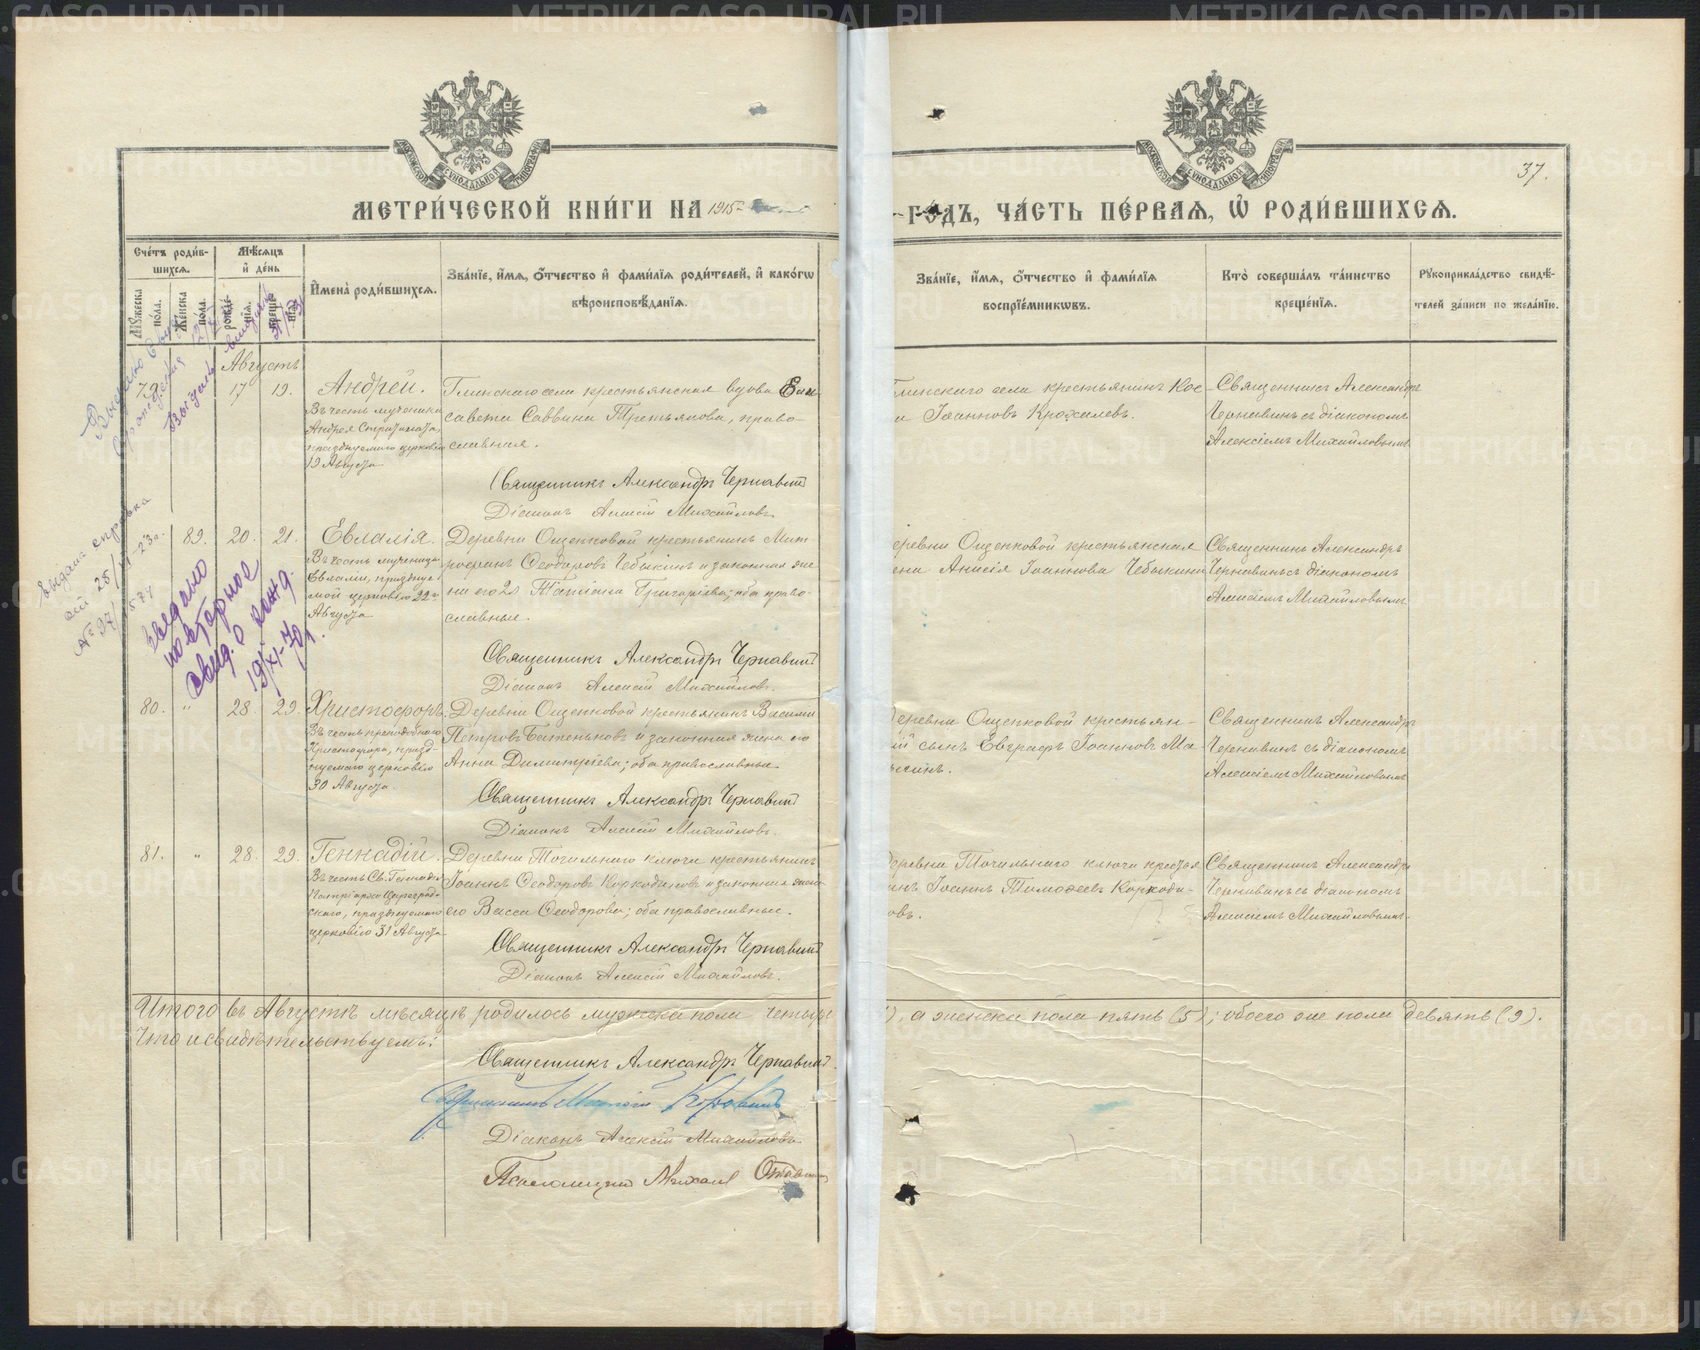 МЕТРИ́ЧЕСКОЙ КНИ́ГИ НА 1915
ГО́ДЪ, ЧА́СТЬ ПЕ́РВАЯ, Ѡ҆ РОДИ́ВШИХСЯ.
37.
Сче́тъ роди́в-
шихся.
Му́жеска по́ла.
Же́нска по́ла.
Мѣ́сяцъ
и҆ де́нь
рожде́-
нїя.
креще́-
нїя.
И҆мена̀ роди́вшихся.
Зва́нїе, и҆́мя, ѻ҆́тчество и҆ фами́лїя роди́телей, и҆ како́гѡ
вѣроисповѣ́данїя.
Зва́нїе, и҆́мя, ѻ҆́тчество и҆ фами́лїя
воспрїе́мникѡвъ.
Кто̀ соверша́лъ та́инство
креще́нїя.
Рꙋкоприкла́дство свидѣ́-
телей за́писи по жела́нїю.
Августъ
79. 17 19. Андрей.
Въ честь мученика
Андрея Стратилата,
празднуемаго церковію
19 Августа
Глинскаго села крестьянская вдова Ели-
савета Саввина Третьякова, право-
славная.
Священникъ Александръ Чернавинъ
Діаконъ Алексій Михайловъ
Глинскаго села крестьянинъ Кос-
ма Іоанновъ Крохалевъ.
Священникъ Александръ
Чернавинъ съ діакономъ
Алексіемъ Михайловымъ
89. 20. 21. Евлалія.
Въ честь мученицы
Евлаліи, празднуе-
мой церковію 22-го
Августа
Деревни Ощепковой крестьянинъ Мит-
рофанъ Ѳеодоровъ Чебыкинъ и законная же-
на его Татіана Григоріева; оба право-
славные.
Священникъ Александръ Чернавинъ
Діаконъ Алексій Михайловъ.
Деревни Ощепковой крестьянская
жена Анисія Іоаннова Чебыкина
Священникъ Александръ
Чернавинъ съ діакономъ
Алексіемъ Михайловымъ
80. " 28 29 Христофоръ.
Въ честь преподобнаго
Христофора, празд-
нуемаго церковію
30 Августа.
Деревни Ощепковой крестьянинъ Василій
Петровъ Батеньковъ и законная жена его
Анна Димитріева; оба православные.
Священникъ Александръ Чернавинъ
Діаконъ Алексій Михайловъ.
Деревни Ощепковой крестьян-
скій сынъ Евграфъ Іоанновъ
Священникъ Александръ
Чернавинъ съ діакономъ
Алексіемъ Михайловымъ
81. " 28. 29. Геннадій.
Въ честь Св. Геннадія
Патріарха Цареград-
скаго, празднуемаго
церковію 31 Августа
Деревни Точильнаго ключа крестьянинъ
Іоаннъ Ѳеодоровъ Коркодиновъ и законная жена
его Васса Ѳеодорова; оба православные.
Священникъ Александръ Чернавинъ
Діаконъ Алексій Михайловъ.
Деревни Точильнаго ключа крестья-
нинъ Іоаннъ Тимоѳеевъ Коркоди-
новъ.
Священникъ Александръ
Чернавинъ съ діакономъ
Алексіемъ Михайловымъ.
Итого въ Августѣ мѣсяцѣ родилось мужска пола четыре
), а женска пола пять (5); обоего же пола девять (9).
Что и свидѣтельствуемъ:
Священникъ Александръ Чернавинъ
Діаконъ Алексій Михайловъ
Псаломщикъ Михаилъ
выдано
повторное
свид. о рожд.
19/XI-70 г.
выдана справка
METRIKI.GASO-URAL.RU